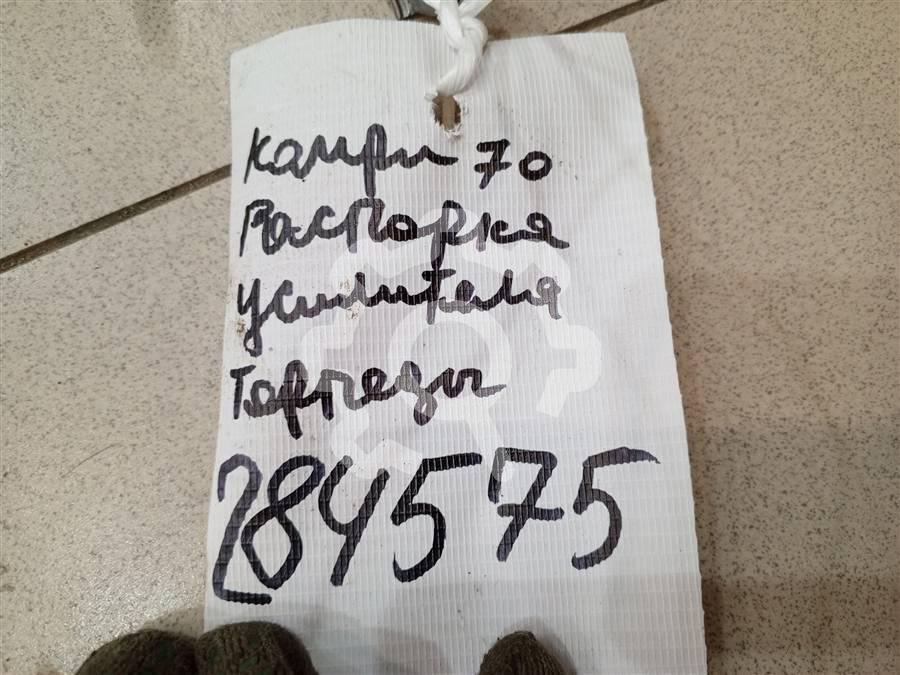 Камри 70
Распорка
усилителя
Торпеды
284575